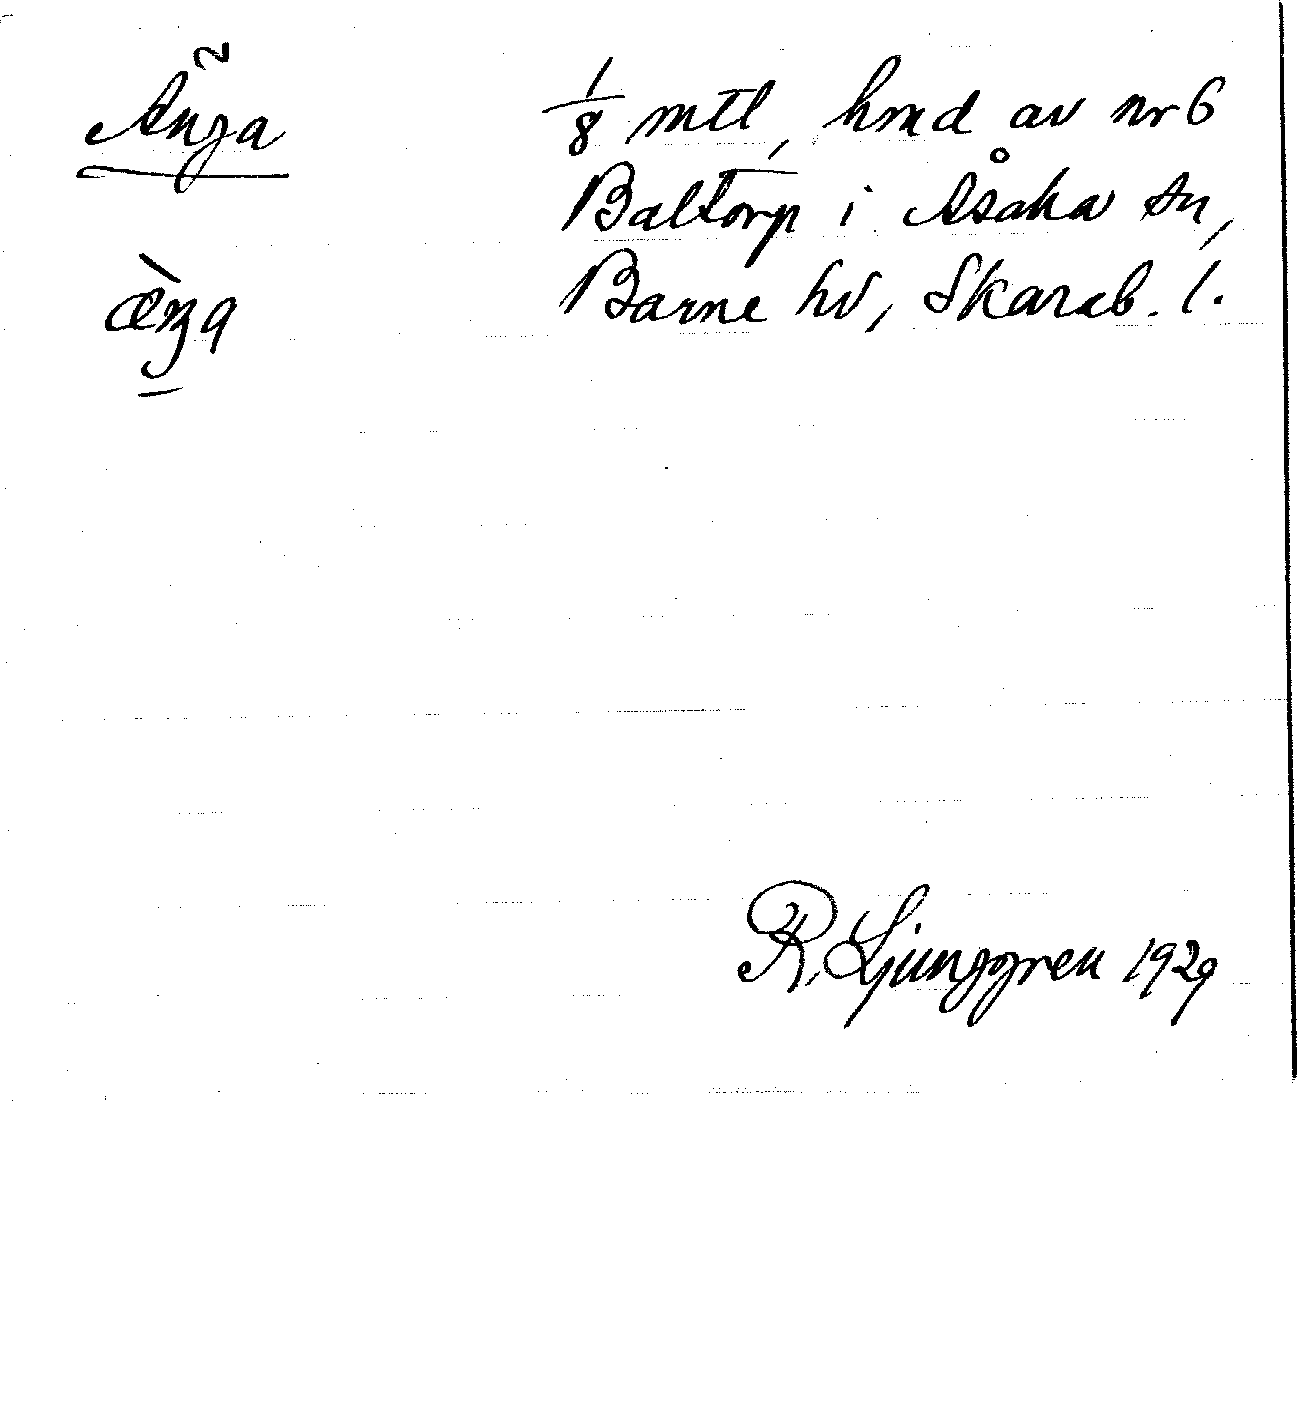 Änga
1/8 mtl, hmd av nr 6
Baltorp i Åsaka sn,
Barne hd, Skarab. l.
R. Ljunggren 1929